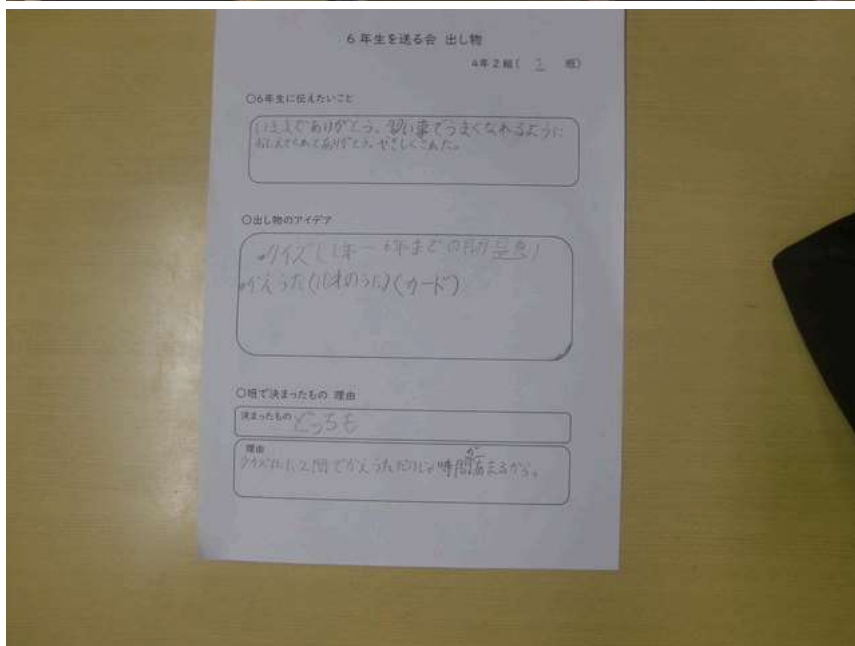 6年生を送る会 出し物
4年2組( 2 班)
○6年生に伝えたいこと
いままでありがとう。習い事でうまくなれるように
おしえてくれてありがとう。やさしくされた。
○出し物のアイデア
クイズ(1年〜6年までの
かえうた( のうた)(カード)
○班で決まったもの 理由
決まったもの どっちも
理由
クイズは1、2問でかえうただけじゃ時間があまるから。